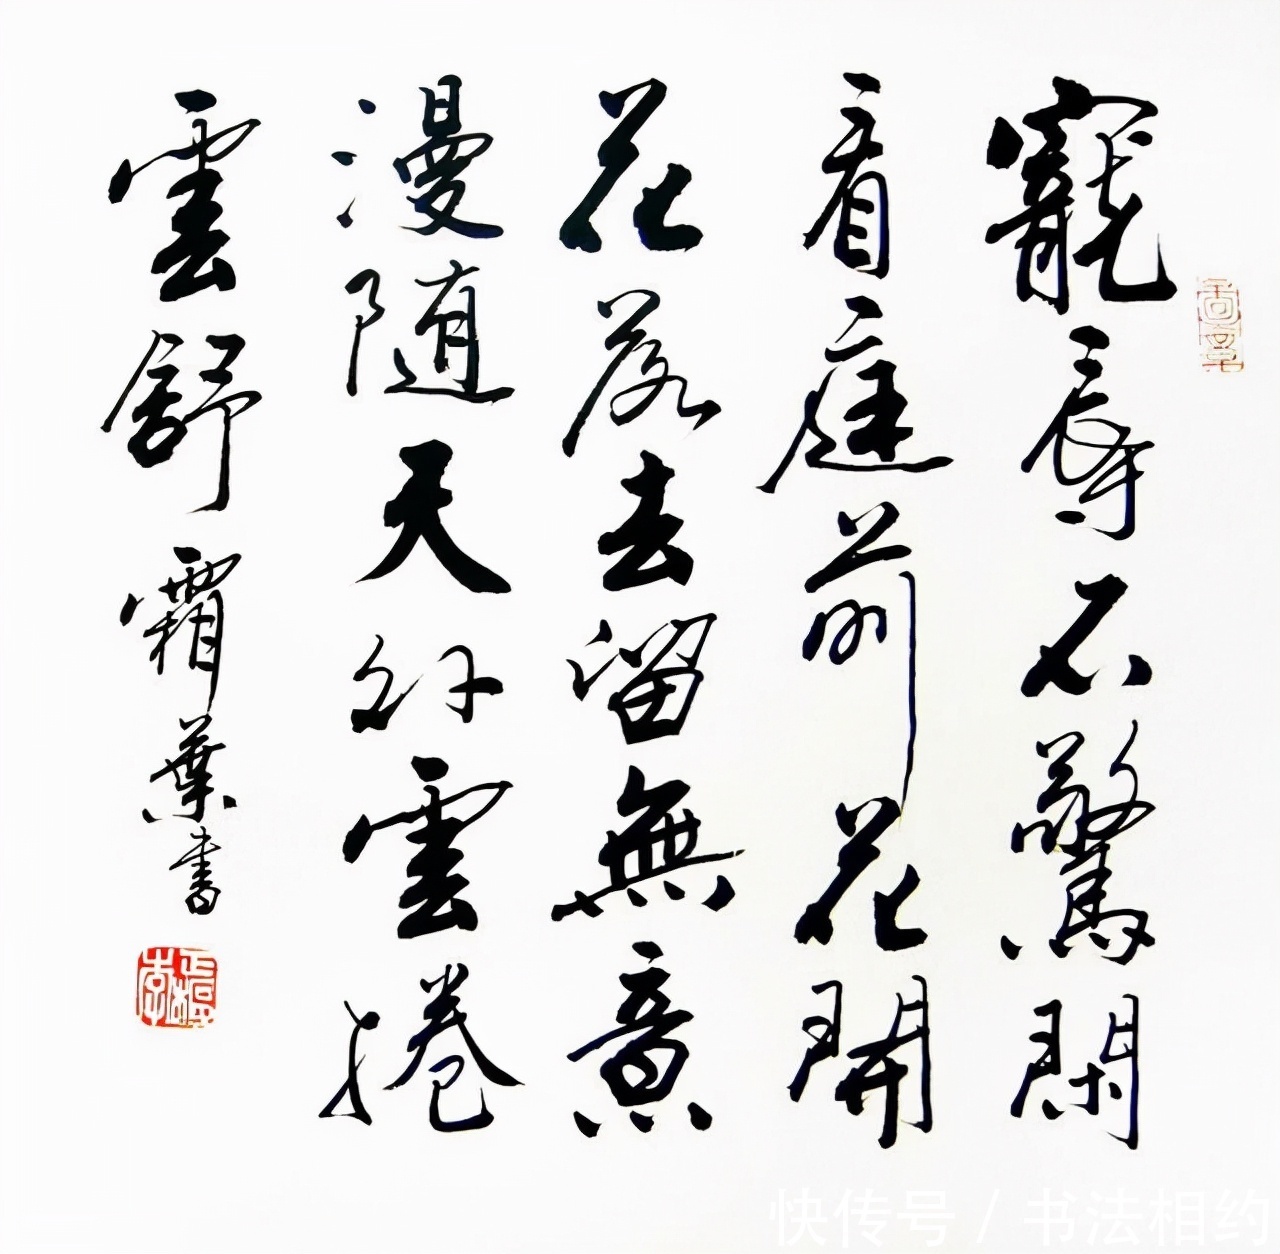 寵辱不驚閑
看庭前花開
花落去留無意
漫随天外雲捲
雲舒 霜葉書
快传号 / 书法相约